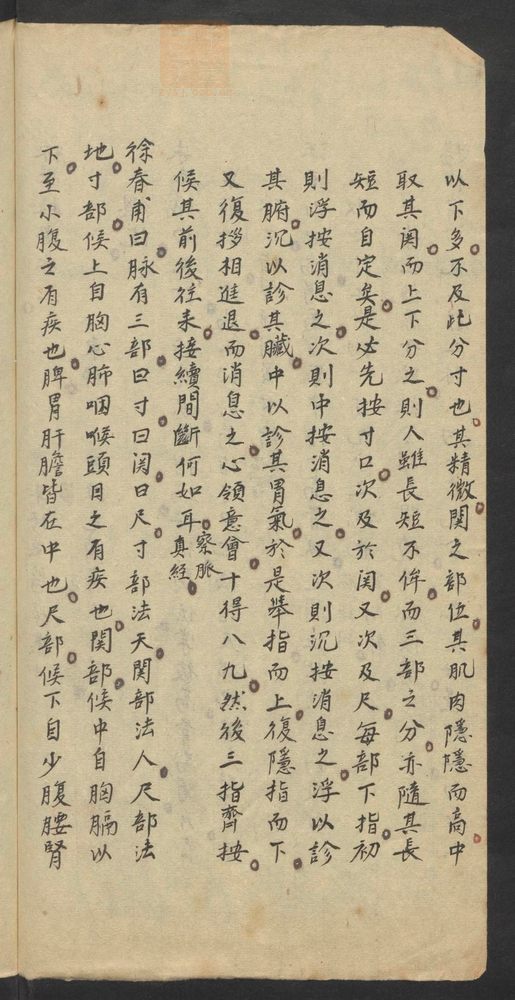 以下多不及此分寸也其精微関之部位其肌肉隱隱而高中
取其関而上下分之則人雖長短不侔而三部之分亦隨其長
短而自定矣是必先按寸口次及於関又次及尺每部下指初
則浮按消息之次則中按消息之又次則沉按消息之浮以診
其腑沉以診其臟中以診其胃氣於是舉指而上復隱指而下
又復挪相進退而消息之心領意會十得八九然後三指齊按
候其前後徃来接續間斷何如耳察脈真經
徐春甫曰脉有三部曰寸曰関曰尺寸部法天関部法人尺部法
地寸部候上自胸心肺咽喉頭目之有疾也関部候中自胸膈以
下至小腹之有疾也脾胃肝膽皆在中也尺部候下自少腹腰腎